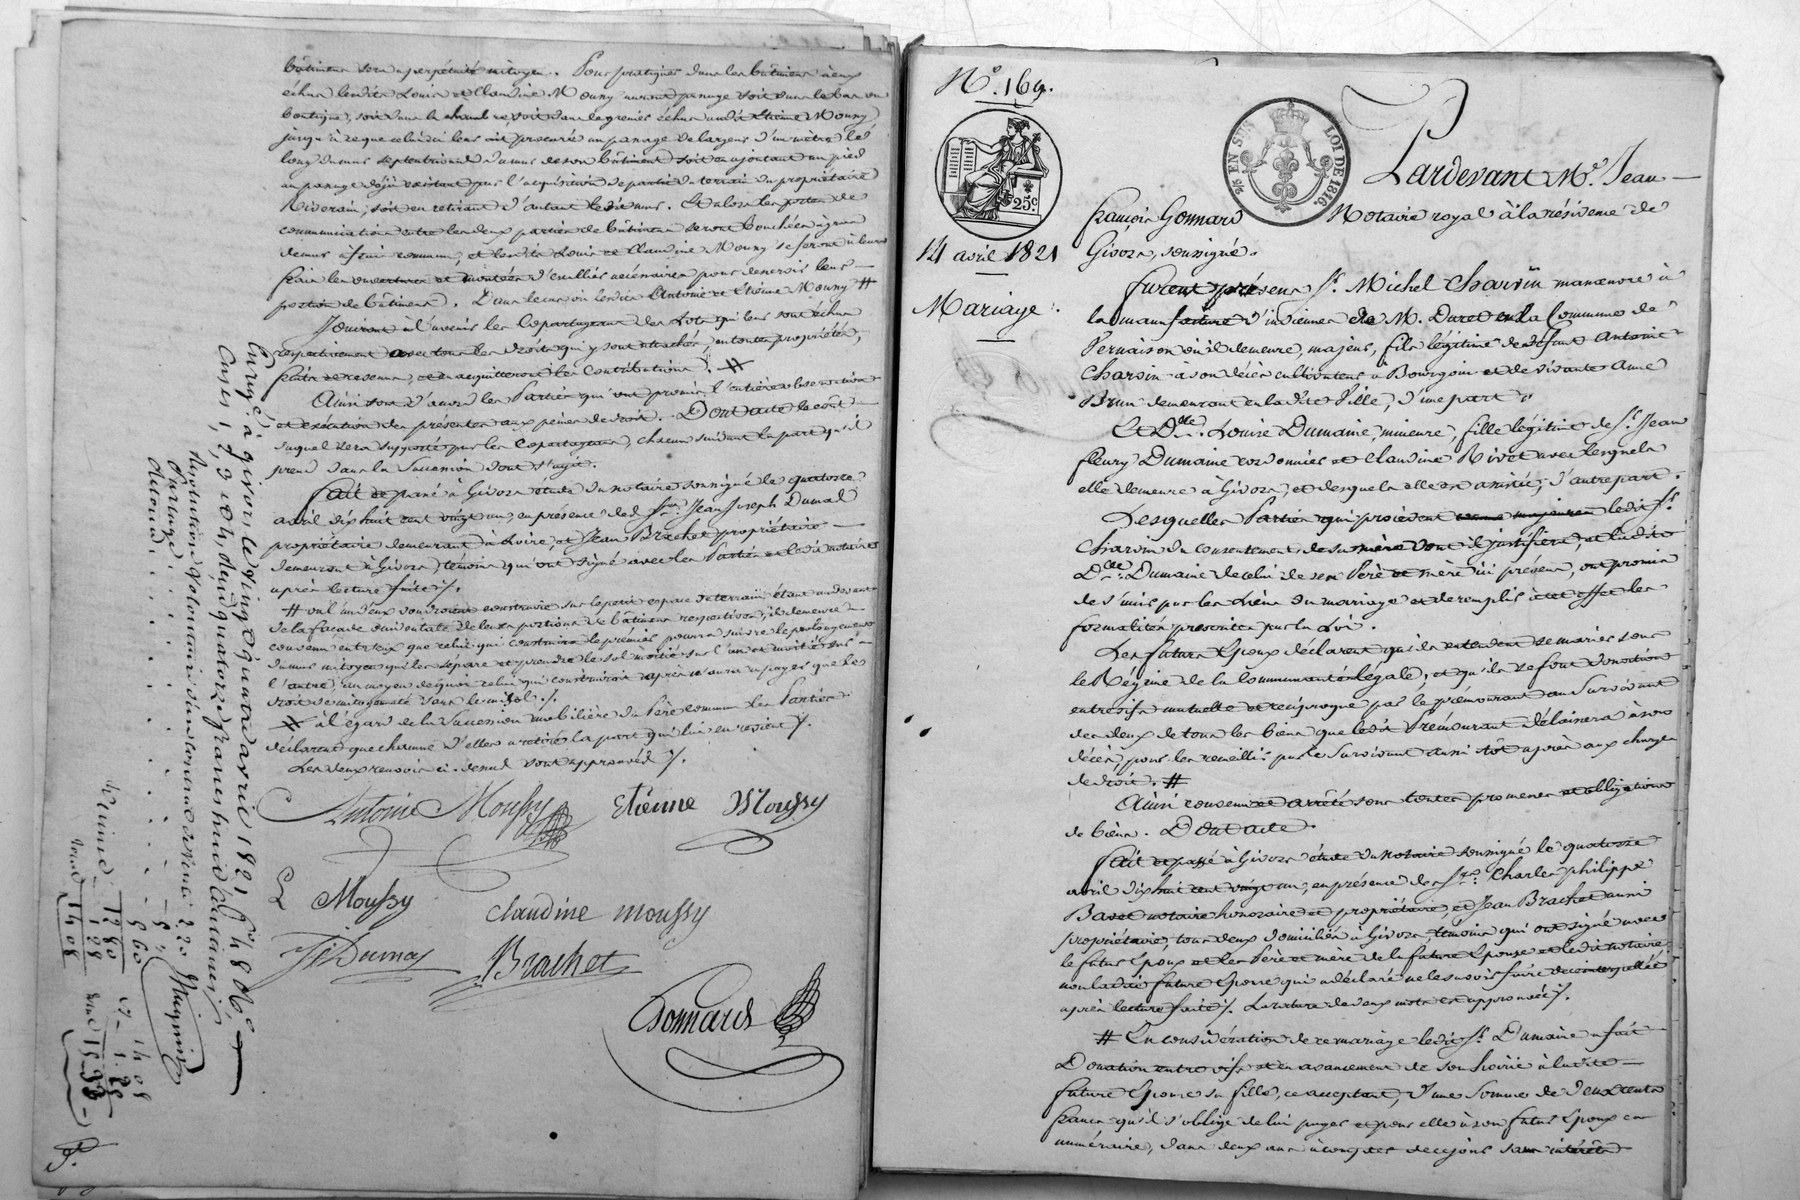 bâtimens sera à perpétuité mitoyen. Pour pratiquer dans les bâtimens à eux
échus lesdits Louis et Claudine Moussy auront passage soit dans le bas ou
boutique, soit dans la chambre, soit dans le grenier échus audit Etienne Moussy
jusqu'à ce que celui-ci leur ait procuré un passage de largeur d'un mètre le
long du mur septentrional du mur de son bâtiment soit en ajoutant un pied
au passage déjà existant par l'acquisition de partie du terrain du propriétaire
Riverain, soit en retirant d'autant ledit mur. Et alors les portes de
communication entre les deux parties de bâtimens seront bouchées à
de mur à frais communs, et lesdits Louis et Claudine Moussy se feront à leurs
frais les ouvertures et montées d'escalliers nécessaires pour desservir leur
portion de bâtimens. Dans le cas où lesdits Antoine et Etienne Moussy #
Jouiront à l'avenir les Copartageans des Lots qui leur sont échus
respectivement avec tous les droits qui y sont attachés, en toute propriété,
sans réserve, et en acquitteront les Contributions. #
Ainsi sont d'accord les Parties qui ont promis l'entière observation
et exécution des présentes aux peines de droit. Dont acte le coût
duquel sera supporté par les Copartageans, chacun suivant la part qu'il
prend dans la Succession dont s'agit.
Fait et passé à Givors étude du notaire soussigné le quatorze
avril dix huit cent vingt un, en présence de Srs. Jean Joseph Dumas
propriétaire demeurant à Loire, et Jean Brachet propriétaire
demeurant à Givors, témoins qui ont signé avec les Parties et ledit notaire
après lecture faite /.
# ou l'un d'eux voudroient construire sur le petit espace de terrain étant au devant
de la façade orientale de leurs portions de bâtimens respectives, il demeure
convenu entr'eux que celui qui construira le premier pourra suivre le prolongement
du mur mitoyen qui les sépare et prendre le sol moitié sur l'un et moitié sur
l'autre, au moyen de quoi celui qui construiroit après n'aura à payer que le
droit de mitoyenneté sans le sol /.
# à l'égard de la Succession mobilière du Père commun les Parties
déclarent que chacune d'elles a retiré la part qui lui en revient /.
Les deux renvois ci-dessus sont approuvés /.
Antoine Moussy Etiènne Moussy
L Moussy claudine moussy
JJ Dumas Brachet
Gonnard
Enregé. à givors le vingt quatre avril 1821, fo. 48
Cases 1, 2, 3 et 4, Reçu quatorze francs huit centimes
Partage
N°. 169.
25c
14 avril 1821
Mariage.
EN SUS
LOI DE 1816.
Pardevant Me. Jean
françois Gonnard Notaire royal à la résidence de
Givors, soussigné.
furent présens Sr. Michel Charvin manœuvre à
la manufacture d'indiennes de M. Duret en la Commune de
Vernaison où il demeure, majeur, fils légitime de défunt Antoine
Charvin à son décès cultivateur à Bourgoin et de vivante Anne
Brun demeurant en la dite Ville, d'une part,
Et Dlle. Louise Dumaine, mineure, fille légitime de Sr. Jean
fleury Dumaine cordonnier et Claudine Rivet avec lesquels
elle demeure à Givors, et desquels elle est assistée, d'autre part.
Lesquelles Parties qui procèdent ledit Sr.
Charvin du consentement de sa mère dont il justifiera, et ladite
Dlle. Dumaine de celui de ses Père et mère ici présens, ont promis
de s'unir par les Liens du mariage et de remplir à cet effet les
formalités prescrites par la Loi.
Les futurs Epoux déclarent qu'ils entendent se marier sous
le Régime de la Communauté légale, et qu'ils se font donation
entrevifs mutuelle et réciproque par le prémourant au Survivant
des deux de tous les biens que ledit Prémourant délaissera à son
décès, pour les recueillir par le Survivant aussi tôt après aux charges
de droit. #
Ainsi convenu et arrêté sous toutes promesses et obligations
de biens. Dont acte.
Fait et passé à Givors étude du notaire soussigné le quatorze
avril dix huit cent vingt un, en présence de Srs. Charles philippe
Basset notaire honoraire et propriétaire, et Jean Brachet aussi
propriétaire, tous deux domiciliés à Givors, témoins qui ont signé avec
le futur Epoux et les Père et mère de la future Epouse et ledit notaire
non ladite future Epouse qui a déclaré ne le savoir faire de ce interpellée
après lecture faite /. La rature de deux mots est approuvée /.
# En considération de ce mariage ledit Sr. Dumaine a fait
Donation entre vifs et en avancement de son hoirie à ladite
future Epouse sa fille, ce acceptant, d'une Somme de deux cents
francs qu'il s'oblige de lui payer et pour elle à son futur Epoux en
numéraire, dans deux ans à compter de ce jour sans intérêts